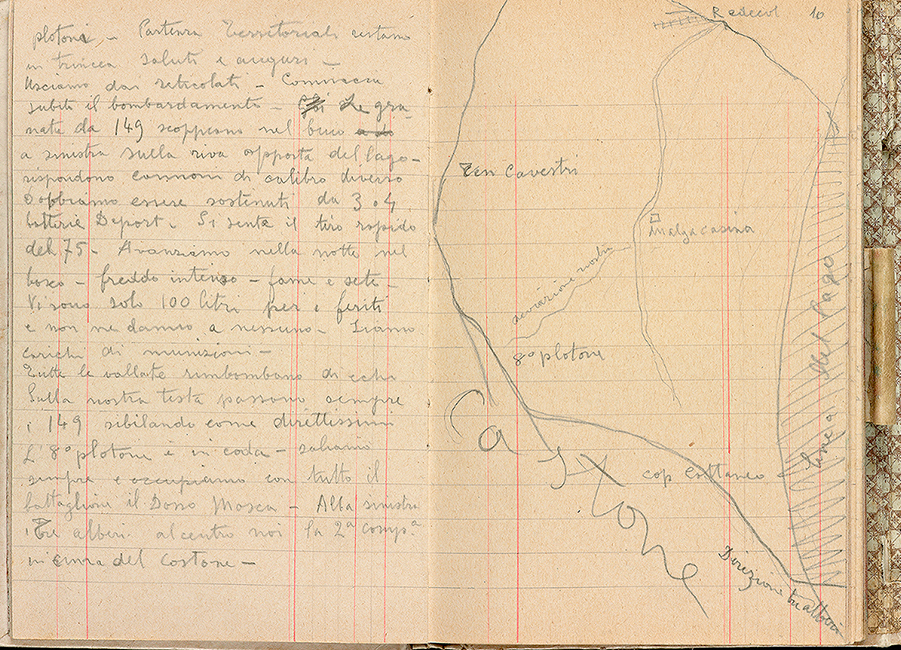 plotoni, - Partenza Territoriali restano
in trincea saluti e auguri -
Usciamo dai reticolati - Comincia
subito il bombardamento - Le gra
nate da 149 scoppiano nel buio
a sinistra sulla riva opposta del lago -
rispondono cannoni di calibro diverso
Dobbiamo essere sostenuti da 3 o 4
batterie Deport. Si sente il tiro rapido
del 75 - Avanziamo nella notte nel
bosco - freddo intenso - fame e sete -
Vi sono solo 100 litri per i feriti
e non ne danno a nessuno - Siamo
carichi di munizioni -
Tutte le vallate rimbombano di echi
Sulla nostra testa passano sempre
i 149 sibilando come direttissimi
L' 8º plotone è in coda - saliamo
sempre e occupiamo con tutto il
battaglione il Dosso Mosca - Alla sinistra
i Tre alberi al centro noi la 2ª compª
in cima del Costone -
10
Ten Cavestri
Malga casina
nostra
8º plotone
Costone
cap Cattaneo
Linea del lago
Direzione tre alberi